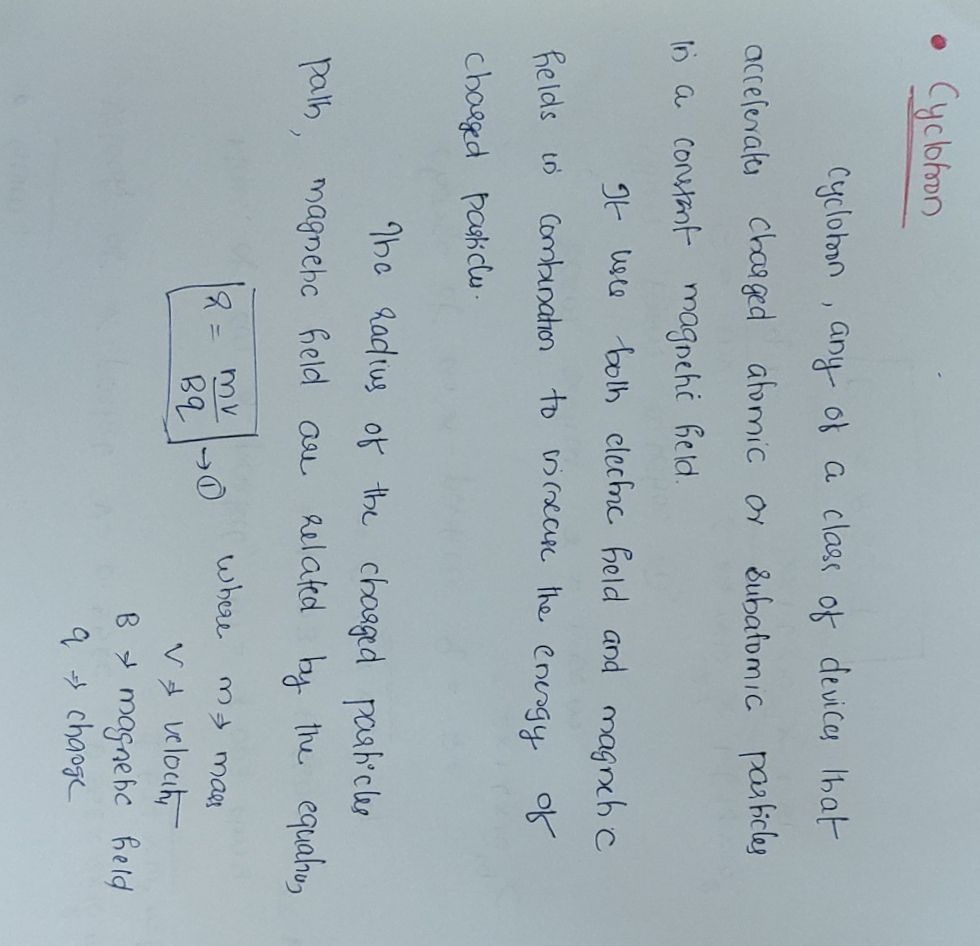 • Cyclotron
Cyclotron, any of a class of devices that
accelerates charged atomic or subatomic particles
in a constant magnetic field.
It uses both electric field and magnetic
fields in combination to increase the energy of
charged particles.
The radius of the charged particles
path, magnetic field are related by the equation,
r = mv/Bq → ①
where m ⇒ mass
v ⇒ velocity
B ⇒ magnetic field
q ⇒ charge